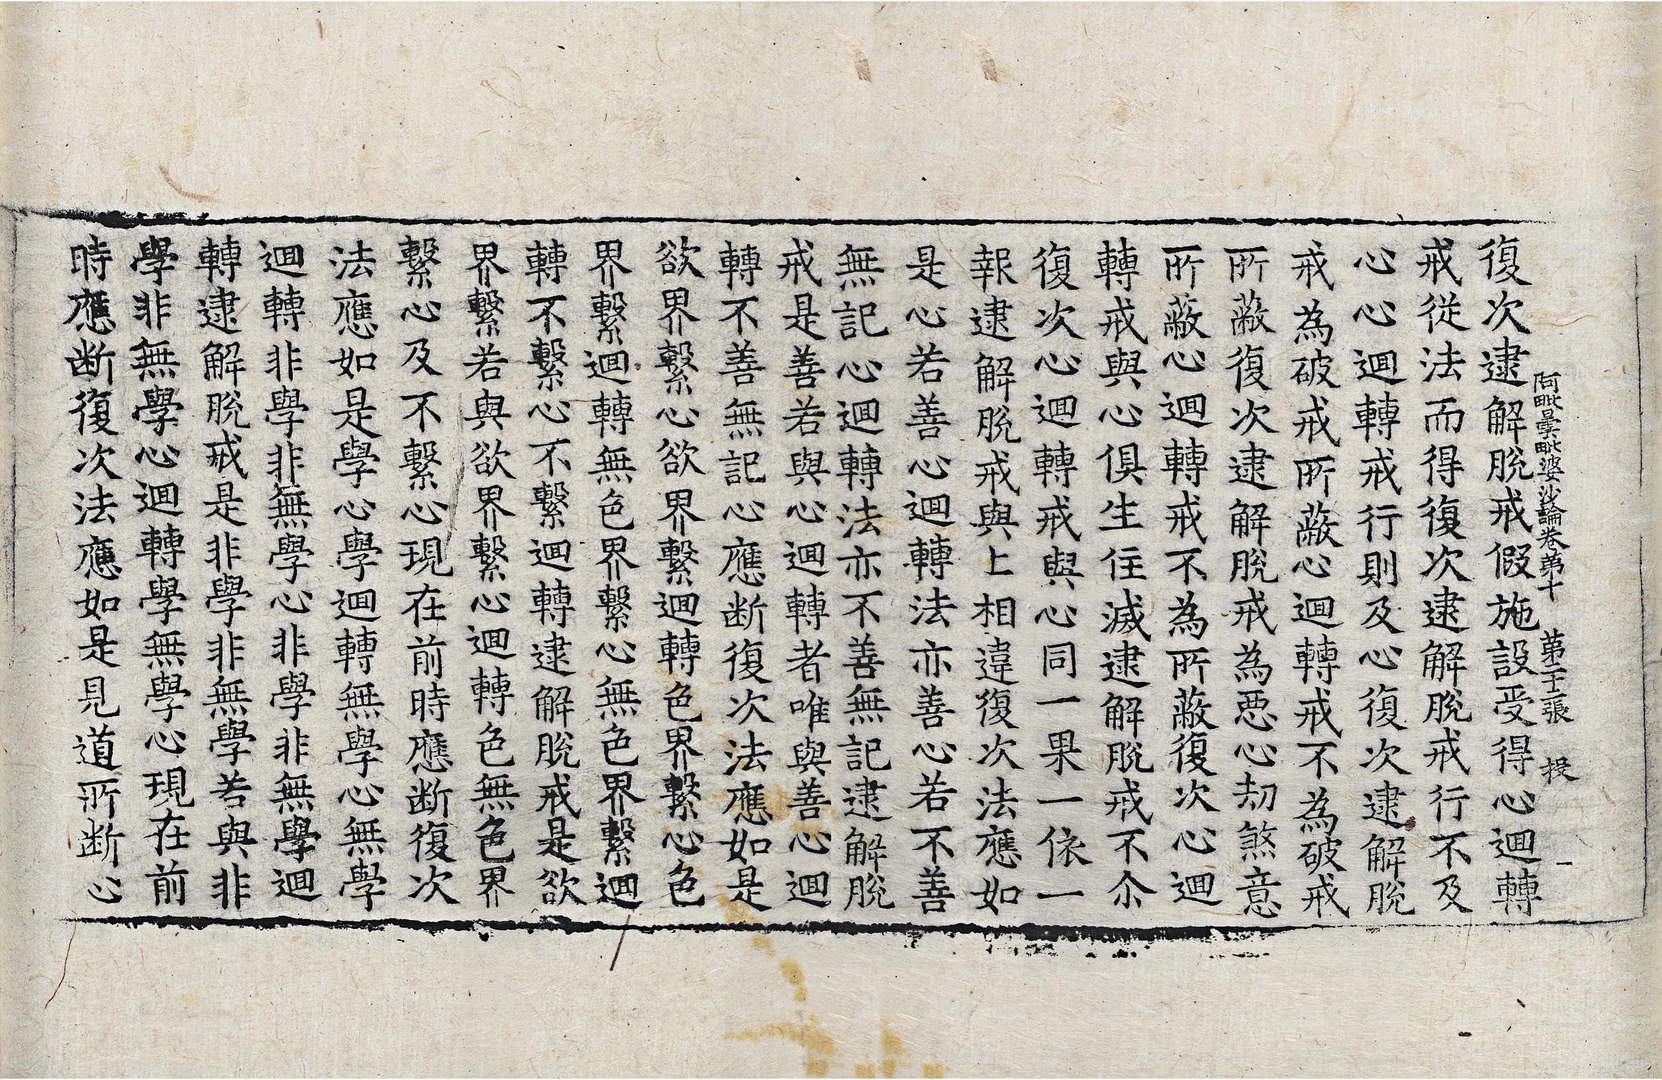 阿毗曇毗婆沙論卷第十　第二十張　投
復次逮解脫戒假施設受得心迴轉
戒從法而得復次逮解脫戒行不及
心心迴轉戒行則及心復次逮解脫
戒為破戒所蔽心迴轉戒不為破戒
所蔽復次逮解脫戒為惡心劫煞意
所蔽心迴轉戒不為所蔽復次心迴
轉戒與心俱生住滅逮解脫戒不尒
復次心迴轉戒與心同一果一依一
報逮解脫戒與上相違復次法應如
是心若善心迴轉法亦善心若不善
無記心迴轉法亦不善無記逮解脫
戒是善若與心迴轉者唯與善心迴
轉不善無記心應断復次法應如是
欲界繫心欲界繫迴轉色界繫心色
界繫迴轉無色界繫心無色界繫迴
轉不繫心不繫迴轉逮解脫戒是欲
界繫若與欲界繫心迴轉色無色界
繫心及不繫心現在前時應断復次
法應如是學心學迴轉無學心無學
迴轉非學非無學心非學非無學迴
轉逮解脫戒是非學非無學若與非
學非無學心迴轉學無學心現在前
時應断復次法應如是見道所断心